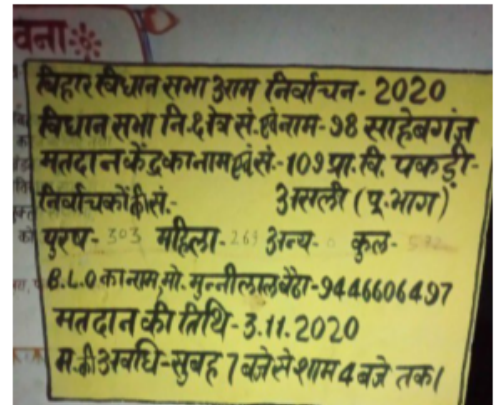 वना
बिहार विधान सभा आम निर्वाचन - 2020
विधान सभा नि.क्षेत्र सं. एवं नाम - 98 साहेबगंज
मतदान केंद्र का नाम एवं सं. - 109 प्रा. वि. पकड़ी -
निर्वाचकों की सं. - असली (पू. भाग)
पुरुष - 303 महिला - 269 अन्य - 0 कुल - 572
B.L.O का नाम, मो. मुन्नीलाल बैठा - 9446606497
मतदान की तिथि - 3.11.2020
म. की अवधि - सुबह 7 बजे से शाम 4 बजे तक।